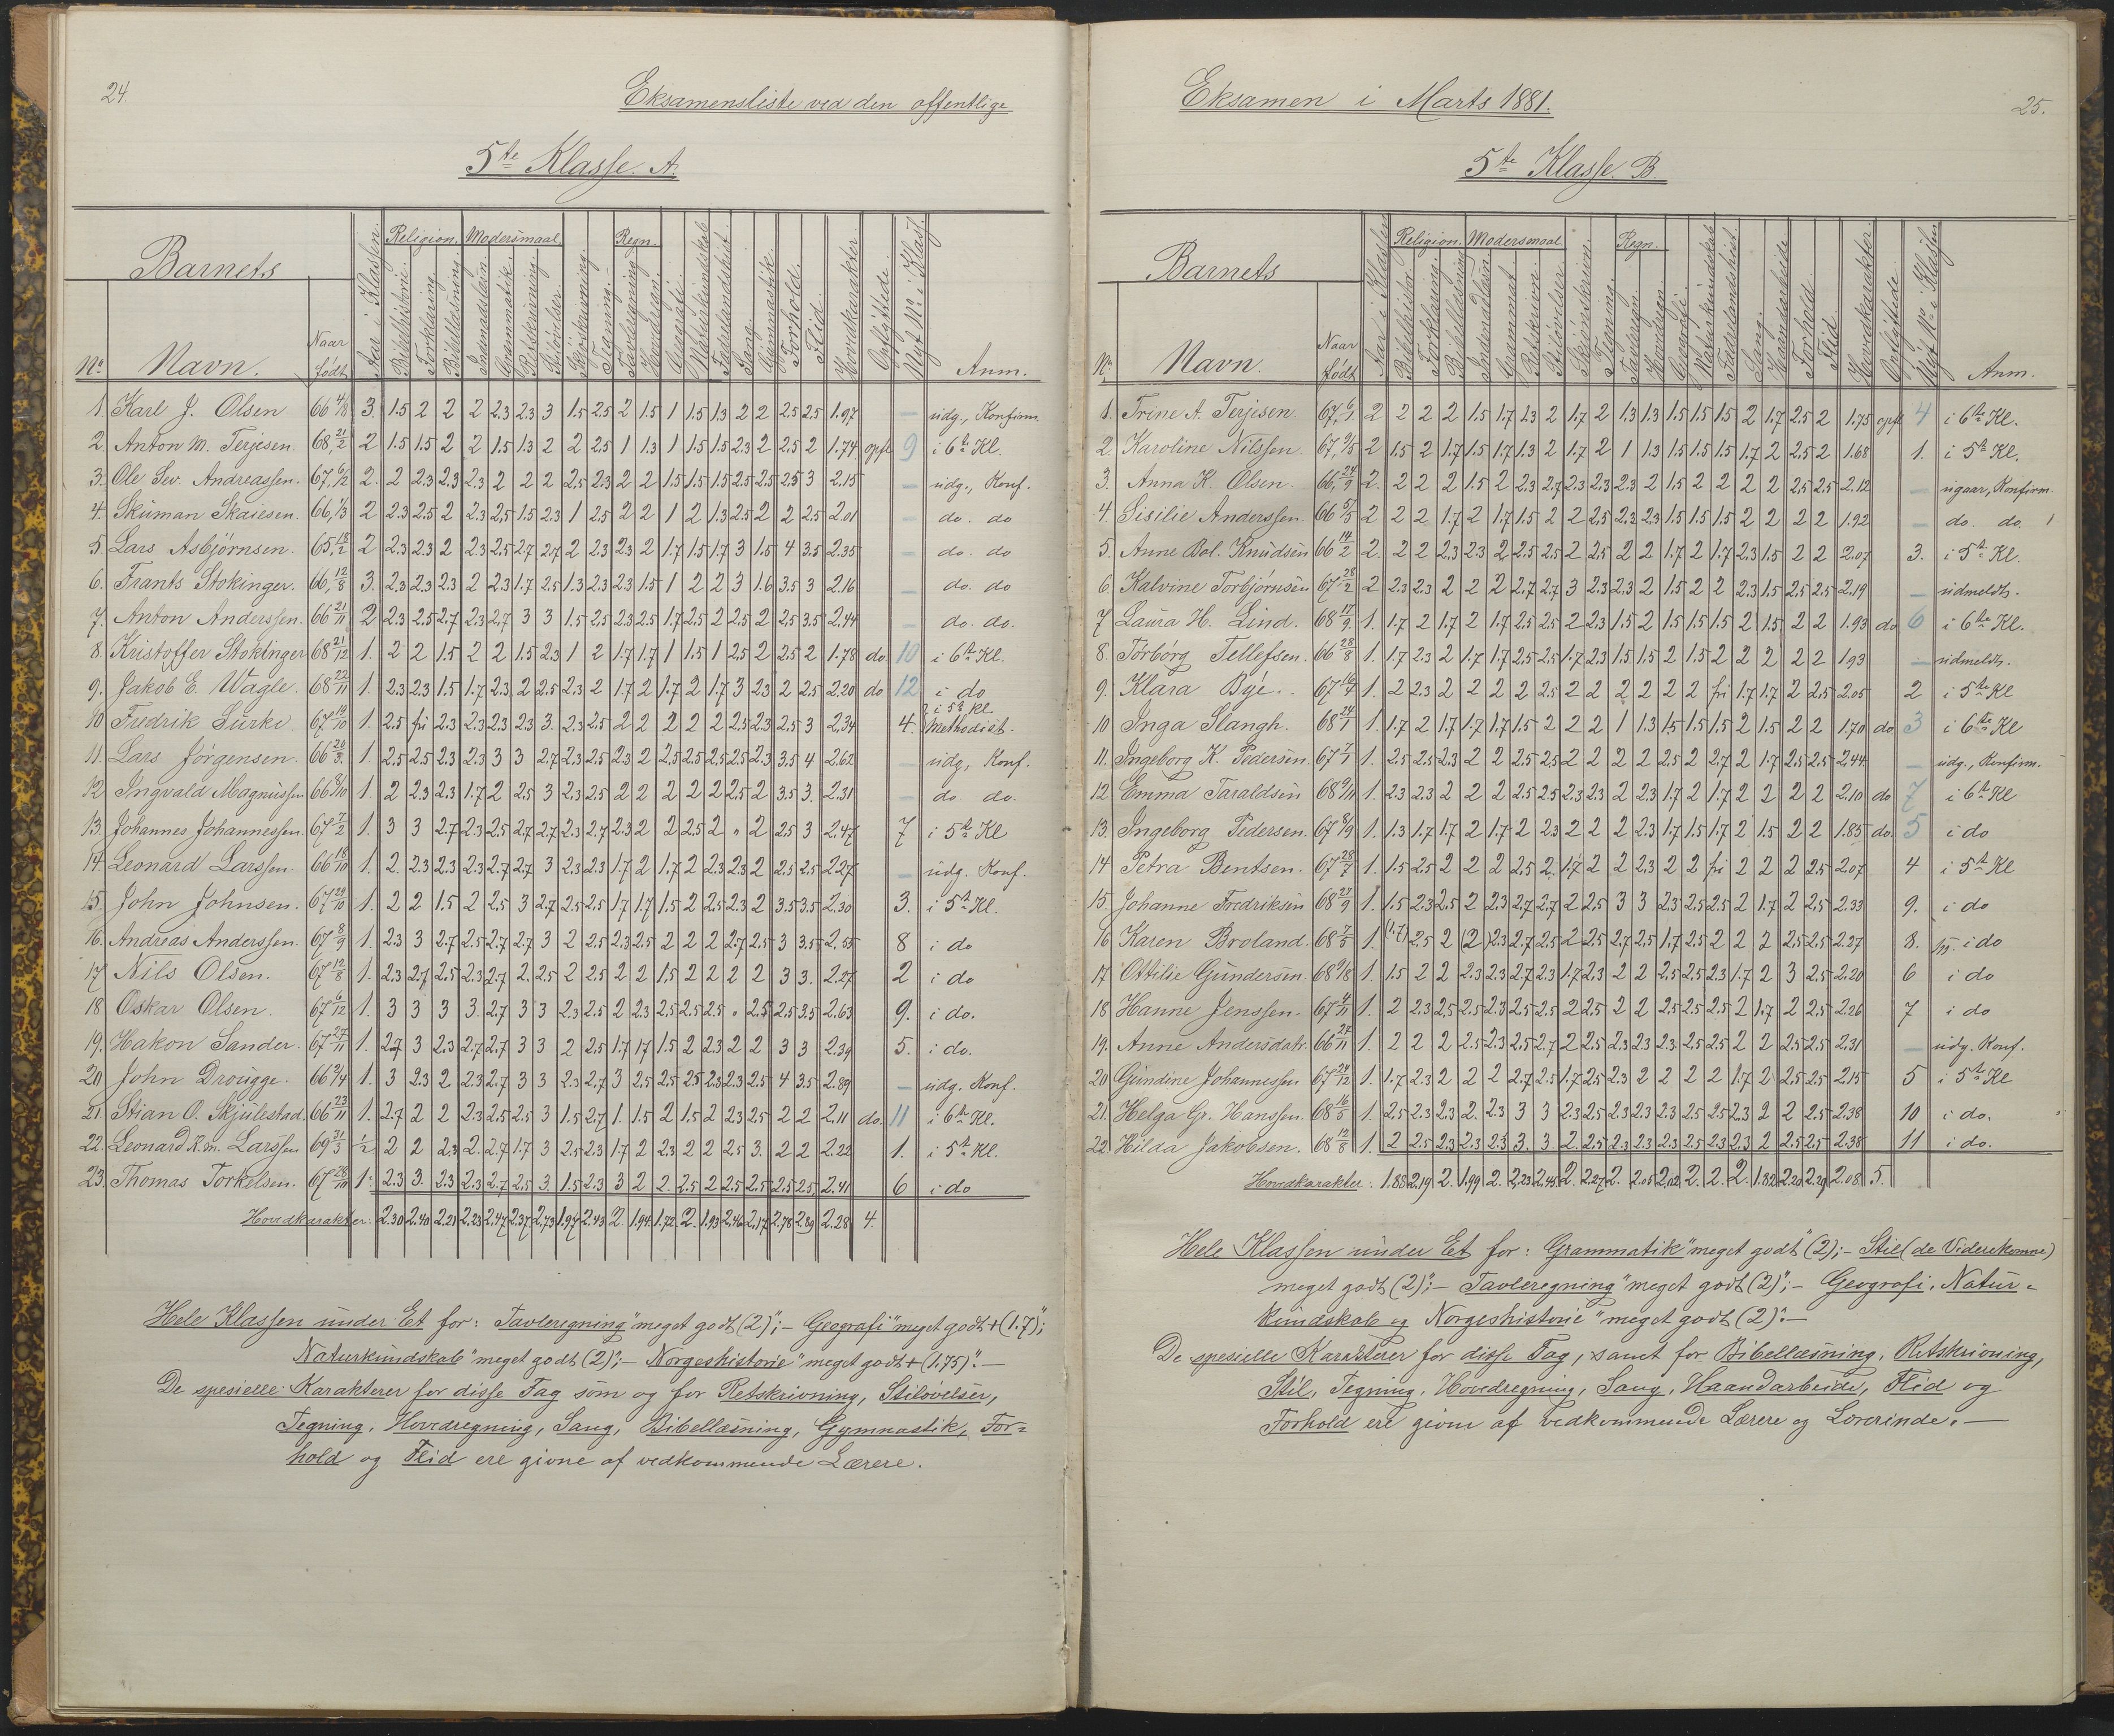 24.
Eksamensliste ved den offentlige
5te Klasse. A.
Barnets
Religion. Modersmaal. Regn.
No Navn. Naar født Aar i Klassen. Bibelhistorie. Forklaring. Bibellæsning. Indenadslæsn. Grammatik. Retskrivning. Stiløvelser. Skjønskrivning. Tegning. Tavleregning. Hovedregn. Geografi. Naturkundskab. Fædrelandshist. Sang. Gymnastik. Forhold. Flid. Hovedkarakter. Opflyttede. Nyt No. i Klass. Anm.
1. Karl J. Olsen 66 4/8 3. 1.5 2 2 2 2.3 2.3 3 1.5 2.5 2 1.5 1 1.5 1.3 2 2 2.5 2.5 1.97 — udg., Konfirm.
2. Anton M. Terjesen. 68, 21/2 2 1.5 1.5 2 2 1.5 1.3 2 2 2.5 1 1.3 1 1.5 1.5 2.3 2 2.5 2 1.74 opfl 9 i 6te Kl.
3. Ole Sev. Andreassen. 67, 6/12 2. 2 2.3 2.3 2.3 2 2 2 2.5 2.3 2 2 1.5 1.5 1.5 2.5 2.5 2.5 3 2.15 — udg., Konf.
4. Skuman Skaiesen. 66, 1/3 2 2.3 2.5 2 2.3 2.5 1.5 2.3 1 2.5 2 2 1 2 1.3 2.5 2 2 2.5 2.01 — do. do
5. Lars Asbjørnsen. 65, 18/2 2 2.3 2.3 2 2.3 2.5 2.7 2.7 2 2.3 2.3 2 1.7 1.5 1.7 3 1.5 4 3.5 2.35 — do. do
6. Frants Stokinger. 66, 12/8 3. 2.3 2.3 2.3 2 2.3 1.7 2.5 1.3 2.3 2.3 1.5 1 2 2 3 1.6 3.5 3 2.16 — do. do
7. Anton Anderssen. 66 21/11 2 2.3 2.5 2.7 2.3 2.7 3 3 1.5 2.5 2.3 2.5 1.7 2.5 2 2.5 2 2.5 3.5 2.44 — do. do.
8. Kristoffer Stokinger 68 21/12 1. 2 2 1.5 2 2 1.5 2.3 1 2 1.7 1.7 1 1.5 1 2.5 2 2.5 2 1.78 do 10 i 6te Kl.
9. Jakob E. Wagle. 68 22/11 1. 2.3 2.3 1.5 1.7 2.3 2 2.5 2.3 2 1.7 2 1.7 2 1.7 3 2.3 2 2.5 2.20 do 12 i do
10 Fredrik Surke 67 14/10 1. 2.5 fri 2.3 2.3 2.3 2.3 3. 2.3 2.5 2 2 2 2 2 2.5 2.3 2.5 3 2.34 4. i 5te Kl. Methodist.
11. Lars Jørgensen. 66 20/3. 1 2.5 2.5 2.3 2.3 3 3 2.7 2.3 2.5 2.3 2 2.5 2.5 2.5 2.5 2.3 3.5 4 2.62 — udg, Konf.
12 Ingvald Magnussen 66 8/10 1. 2 2.3 2.3 1.7 2 2.5 3 2.3 2.5 2 2 2 2 2 2.5 2 3.5 3. 2.31 — do do.
13. Johannes Johannessen. 67 7/2 1. 3 3 2.7 2.3 2.5 2.7 2.7 2.3 2.7 2.3 2 2 2.5 2 " 2 2.5 3 2.47 7 i 5te Kl
14. Leonard Larssen. 66 18/10 1. 2. 2.3 2.3 2.3 2.7 2.7 3 2.3 2.3 1.7 2 1.7 2 2.3 2.3 2 2.5 2.5 2.27 — udg. Konf.
15. John Johnsen. 67 29/10 1. 2 2 1.5 2 2.5 3 2.7 2.5 2.5 1.7 1.7 1.5 2 2.5 2.3 2 3.5 3.5 2.30 3. i 5te Kl.
16. Andreas Anderssen. 67 8/9 1. 2.3 3 2.7 2.5 2.7 2.7 3 2 2.5 2.3 2.5 2 2 2 2.7 2.5 3 3.5 2.55 8 i do
17 Nils Olsen. 67 12/8 1. 2.3 2.7 2.5 2.3 2.7 2 2.5 2 2.5 2 2 1.5 2 2 2 2 3 3. 2.27 2 i do
18 Oskar Olsen. 67 6/12 1. 3 3 3 3. 2.7 3 3 2.3 2.5 2 2.3 2.5 2.5 2.5 " 2.5 2.5 3.5 2.63 9. i do.
19. Hakon Sander. 67 27/11 1. 2.7 3 2.3 2.7 2.7 3 3 2 2.5 1.7 1.7 1.5 2 2.3 2 2 3 3 2.39 5. i do.
20 John Drougge. 66 9/4 1. 3 2.3 2 2.3 2.7 3 3 2.3 2.7 3 2.5 2.5 2.5 2.3 2.3 2.5 4 3.5 2.89 — udg. Konf.
21 Stian O. Skjulestad. 66 23/11 1. 2.7 2 2 2.3 2.5 2.5 3 1.5 2.7 1. 1.5 2 1.5 2 2.3 2.5 2 2 2.11 do. 11 i 6te Kl.
22. Leonard K.M. Larssen 69 31/3 1/2 2 2 2.3 2. 2.7 1.7 3 2.5 2.3 1.7 2 2.3 2 2 2.5 3. 2 2 2.22 1. i 5te Kl.
23. Thomas Torkelsen. 67 28/10 1. 2.3 3. 2.3 2.3 2.7 2.5 3. 1.5 2.3 3 2 2. 2.5 2 2.5 2.5 2.5 2.5 2.41 6 i do
Hovedkarakter: 2.30 2.40 2.21 2.23 2.47 2.37 2.73 1.97 2.43 2. 1.94 1.72 2. 1.93 2.46 2.17 2.78 2.89 2.28 4.
Hele Klassen under Et for: Tavleregning "meget godt (2)"; – Geografi "meget godt + (1.7)";
Naturkundskab "meget godt (2)"; – Norgeshistorie "meget godt + (1.75)". –
De spesielle Karakterer for disse Fag som og for Retskrivning, Stiløvelser,
Tegning, Hovedregning, Sang, Bibellæsning, Gymnastik, For=
hold og Flid ere givne af vedkommende Lærere.
Eksamen i Marts 1881.
25.
5te Klasse. B.
Barnets
Religion. Modersmaal. Regn.
No Navn. Naar født Aar i Klassen Bibelhistor. Forklaring. Bibellæsning Indenadslæsn. Grammat. Retskrivn. Stiløvelser. Skjønskrivn. Tegning. Tavleregn. Hovedregn. Geografi. Naturkundskab Fædrelandshist. Sang. Haandarbeide Forhold. Flid Hovedkarakter Opflyttede. Nyt No. i Klassen Anm.
1. Trine A. Terjesen. 67, 6/1. 2 2 2 2 1.5 1.7 1.3 2 1.7 2 1.3 1.3 1.5 1.5 1.5 2 1.7 2.5 2 1.75 opfl 4 i 6te Kl.
2. Karoline Nilssen. 67, 9/5 2 1.5 2 1.7 1.5 1.7 1.3 2 1.7 2 1 1.3 1.5 1.5 1.5 1.7 2 2.5 2 1.68 1. i 5te Kl.
3. Anna K. Olsen. 66, 24/9 2. 2 2 2 1.5 2 2.3 2.7 2.3 2.3 2.3 2 1.5 2 2 2 2 2.5 2.5 2.12 — ugaar, Konfirm.
4. Sisilie Anderssen. 66 5/5 2 2 2 1.7 2 1.7 1.5 2 2 2.5 2.3 2.3 1.5 1.5 1.5 2 2 2 2 1.92 — do. do.
5. Anne Bol. Knudsen 66 14/2 2. 2 2 2.3 2.3 2 2.5 2.5 2 2.5 2 2 1.7 2 1.7 2.3 1.5 2 2 2.07 3. i 5te Kl.
6. Kalvine Torbjørnsen 67 28/2 2 2.3 2.3 2 2 2 2.7 2.7 3 2.3 2.3 2 1.5 2 2 2.3 1.5 2.5 2.5 2.19 — udmeldt.
7 Laura H. Lind. 68 17/9. 1. 1.7 2 1.7 2 1.7 2.5 2.5 2 2.3 1.5 2 1.5 1.5 1.5 2 1.5 2 2 1.93 do 6 i 6te Kl.
8. Torborg Tellefsen. 66 28/8 1. 1.7 2.3 2 1.7 1.7 2.5 2.5 1.7 2.3 1.5 1.5 2 1.5 2 2 2 2 2 1.93 — udmeldt.
9. Klara Bye. 67 16/4 1. 2 2.3 2 2 2 2 2.5 2 2 2 2 2 2 fri 1.7 1.7 2 2.5 2.05 2 i 5te Kl
10 Inga Slangh. 68 24/1 1. 1.7 2 1.7 1.7 1.7 1.5 2 2 2 1 1.3 1.5 1.5 1.5 2 1.5 2 2 1.70 do 3 i 6te Kl
11. Ingeborg K. Pedersen. 67 7/1 1. 2.5 2.5 2.3 2 2 2.5 2.5 2 2 2 2 2.5 2 2.7 2 1.7 2.5 2.5 2.44 — udg., Konfirm.
12 Emma Taraldsen 68 9/11 1. 2.3 2.3 2 2 2 2.5 2.5 2.3 2.3 2 2.3 1.7 2 1.7 2 2 2 2 2.10 do 7 i 6te Kl
13. Ingeborg Pedersen. 67 8/9 1. 1.3 1.7 1.7 2 1.7 2 2.3 2 2 2 2.3 1.7 1.5 1.7 2 1.5 2 2 1.85 do. 5 i do
14 Petra Bentsen. 67 28/7 1. 1.5 2.5 2 2 2 2.5 2. 1.7 2 2 2.3 2 2 fri 2 2 2 2.5 2.07 4 i 5te Kl
15. Johanne Fredriksen 68 27/9 1. 1.5 2.3 2.5 2 2.3 2.7 2.7 2 2.5 3 3 2.3 2.5 2.5 2 1.7 2 2.5 2.33 9. i do
16 Karen Broland. 68 7/5 1. (1.7) 2.5 2 (2) 2.3 2.7 2.5 2 2.5 2.7 2.5 1.7 2.5 2 2 2 2.5 2.5 2.27 8. i do
17 Ottilie Gundersen. 68 9/8 1. 1.5 2 2 2.3 2.3 2.7 2.3 1.7 2.3 2 2 2.5 2.5 2.3 1.7 2 3 2.5 2.20 6 i do
18 Hanne Jenssen. 67 4/11 1. 2 2.3 2.5 2.5 2.3 2.5 2.5 2 2.5 2 2 2.5 2.5 2.5 2 1.7 2 2.5 2.26 7 i do
19. Anne Andersdatr. 66 27/11 1. 2 2 2 2.5 2.3 2.5 2.7 2 2.5 2.3 2.3 2.3 2.5 2.5 2 2 2.5 2.5 2.31 — udg. Konf.
20 Gundine Johannessen 67 24/12 1. 1.7 2.3 2 2 2 2.7 2.5 1.7 2.5 2.3 2 2 2 2 1.7 2 2.5 2.5 2.15 5 i 5te Kl
21. Helga Gr. Hanssen. 68 16/5 1. 2.5 2.3 2.3 2. 2.3 3 3 2.3 2.5 2.3 2.3 2.3 2.5 2.5 2.3 2 2 2.5 2.38 10 i do.
22 Hilda Jakobsen. 68 12/8 1. 2 2.5 2.3 2.3 2.3 3. 3. 2. 2.5 2.3 2.3 2.3 2.5 2.3 2.3 2 2.5 2.5 2.38 11 i do.
Hovedkarakter: 1.88 2.19 2. 1.99 2. 2.23 2.45 2. 2.27 2. 2.05 2.02 2. 2. 2. 1.82 2.20 2.29 2.08 5.
Hele Klassen under Et for: Grammatik "meget godt" (2); – Stil (de Viderekomne)
meget godt (2)"; – Tavleregning "meget godt (2)"; – Geografi, Natur=
kundskab og Norgeshistorie "meget godt (2)". –
De spesielle Karakterer for disse Fag, samt for Bibellæsning, Retskrivning,
Stil, Tegning, Hovedregning, Sang, Haandarbeide, Flid og
Forhold ere givne af vedkommende Lærere og Lærerinde. –